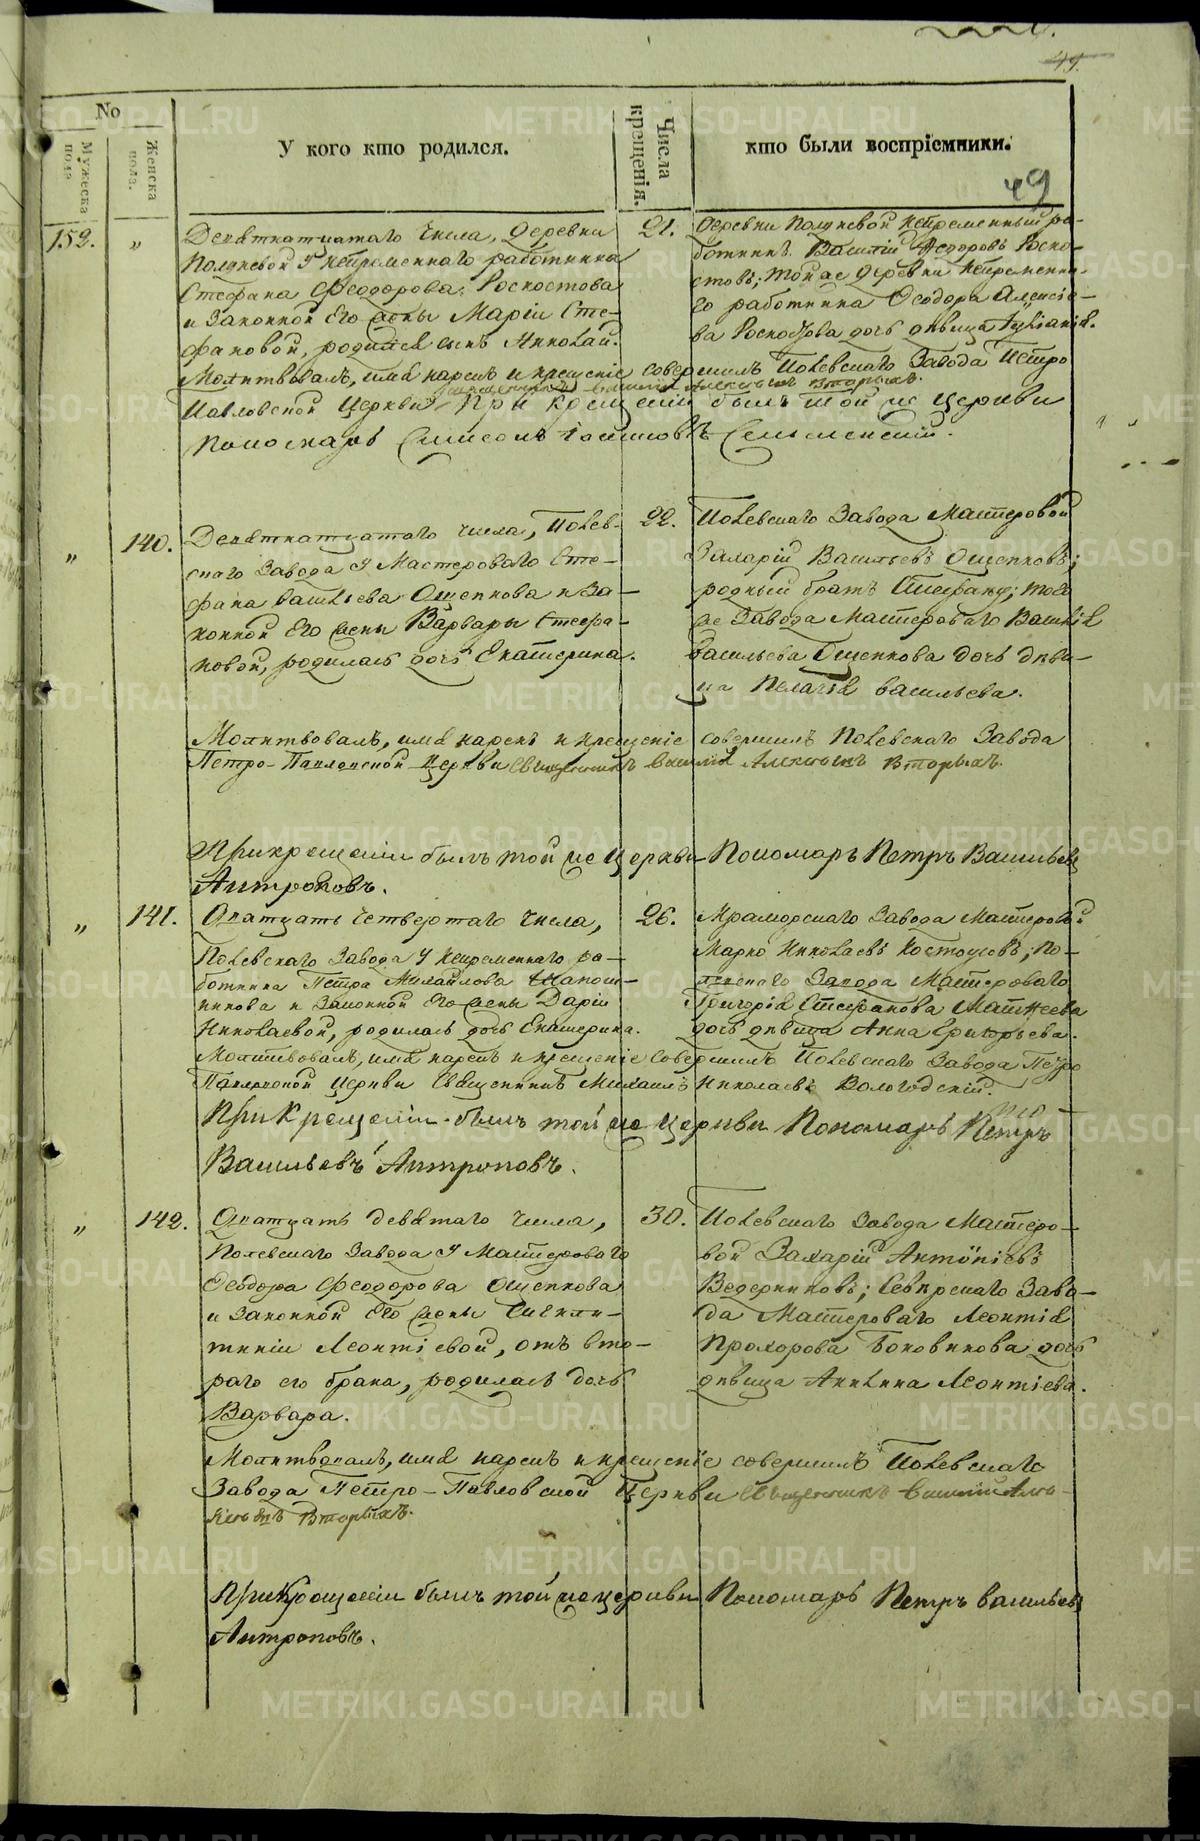 49.
No
Мужеска пола
Женска пола.
У кого кто родился.
Числа крещенія.
кто были воспріемники.
49
152.
„
Девятнатцатаго числа, Деревни
Полдневой у непременнаго работника
Стефана Феодорова Роскостова
и Законной Его жены Маріи Сте-
фановой, родился сынъ Николай.
21.
Деревни Полдневой непременный ра-
ботникъ Василій Федоровъ Роско-
стовъ; той же деревни непременна-
го работника Феодора Алексіе-
ва дочь девица Іуліанія.
Молитвовалъ, имя нарекъ и крещеніе совершилъ Полевскаго Завода Петро
Священникъ Василій Алексѣевъ Вторыхъ.
Павловской Церкви При крещеніи былъ той же церкви
Пономарь Симеонъ Іоанновъ
„
140.
Девятнатцатаго числа, Полев-
скаго Завода у Мастероваго Сте-
фана Васильева Ощепкова и За-
конной Его жены Варвары Стефа-
новой, родилась дочь Екатерина.
22.
Полевскаго Завода Мастеровой
Захарій Васильевъ Ощепковъ;
родный братъ Стефану; той
же Завода Мастероваго Василія
Васильева Ощепкова дочь деви-
ца Пелагія Васильева.
Молитвовалъ, имя нарекъ и крещеніе совершилъ Полевскаго Завода
Петро-Павловской Церкви Священникъ Василій Алексѣевъ Вторыхъ.
При крещеніи былъ той же церкви Пономарь Петръ Васильевъ
Антроповъ.
„
141.
Дватцать четвертаго числа,
Полевскаго Завода у непременнаго ра-
ботника Петра Михайлова
и Законной Его жены Даріи
Николаевой, родилась дочь Екатерина.
26.
Мраморскаго Завода Мастеровой
Марко Николаевъ Костоусовъ; По-
левскаго Завода Мастероваго
Григорія Стефанова Матвеева
дочь девица Анна Григорьева.
Молитвовалъ, имя нарекъ и крещеніе совершилъ Полевскаго Завода Петро
Павловской Церкви Священникъ Михаилъ Николаевъ Вологодскій.
При Крещеніи былъ той же церкви Пономарь Петръ
Васильевъ Антроповъ.
„
142.
Дватцать девятаго числа,
Полевскаго Завода у Мастероваго
Феодора Феодорова Ощепкова
и Законной Его жены Синкли-
тикіи Леонтіевой, отъ вто-
раго его брака, родилась дочь
Варвара.
30.
Полевскаго Завода Мастеро-
вой Захарій Антоніевъ
Ведерниковъ; Северскаго Заво-
да Мастероваго Леонтія
Прохорова Боковикова дочь
девица Акилина Леонтіева.
Молитвовалъ, имя нарекъ и крещеніе совершилъ Полевскаго
Завода Петро-Павловской Церкви Священникъ Василій Але-
ксѣевъ Вторыхъ.
При Крещеніи былъ той же церкви Пономарь Петръ Васильевъ
Антроповъ.
METRIKI.GASO-URAL.RU